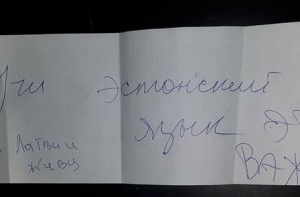 Учи эстонский
язык Э
Латвии
живи
ВАЖ